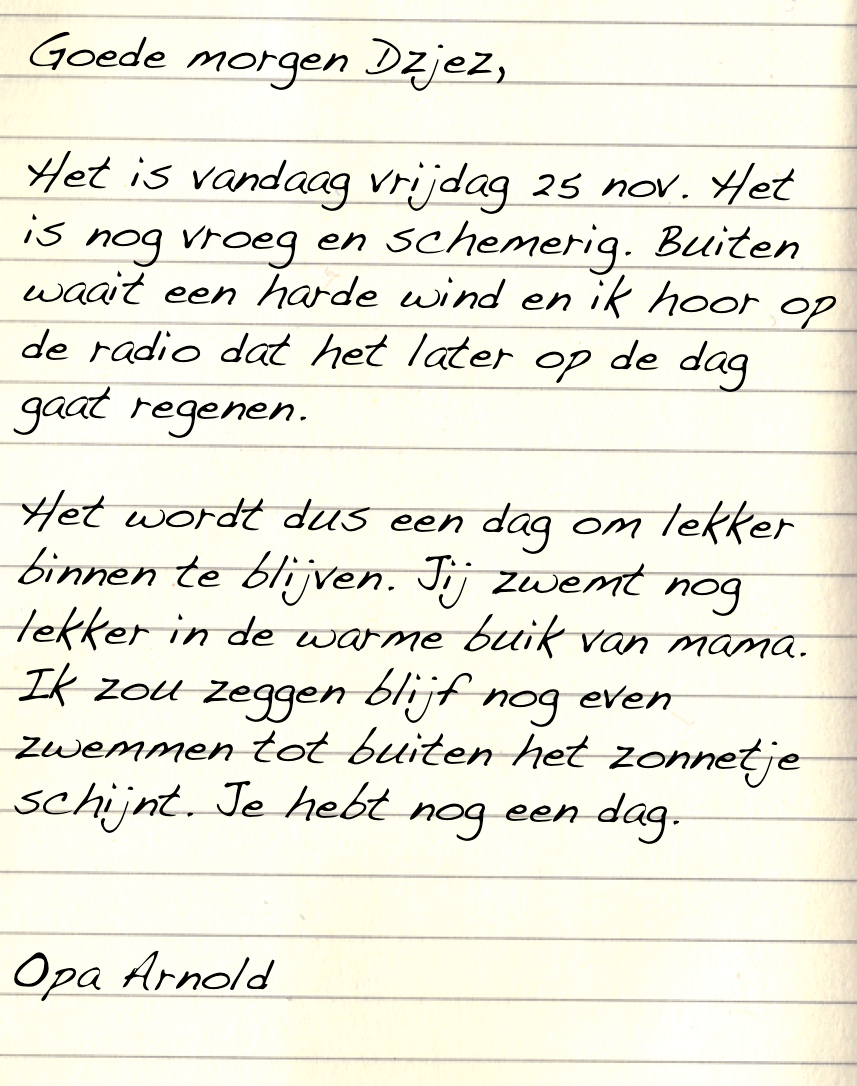 Goede morgen Dzjez,
Het is vandaag vrijdag 25 nov. Het
is nog vroeg en schemerig. Buiten
waait een harde wind en ik hoor op
de radio dat het later op de dag
gaat regenen.
Het wordt dus een dag om lekker
binnen te blijven. Jij zwemt nog
lekker in de warme buik van mama.
Ik zou zeggen blijf nog even
zwemmen tot buiten het zonnetje
schijnt. Je hebt nog een dag.
Opa Arnold